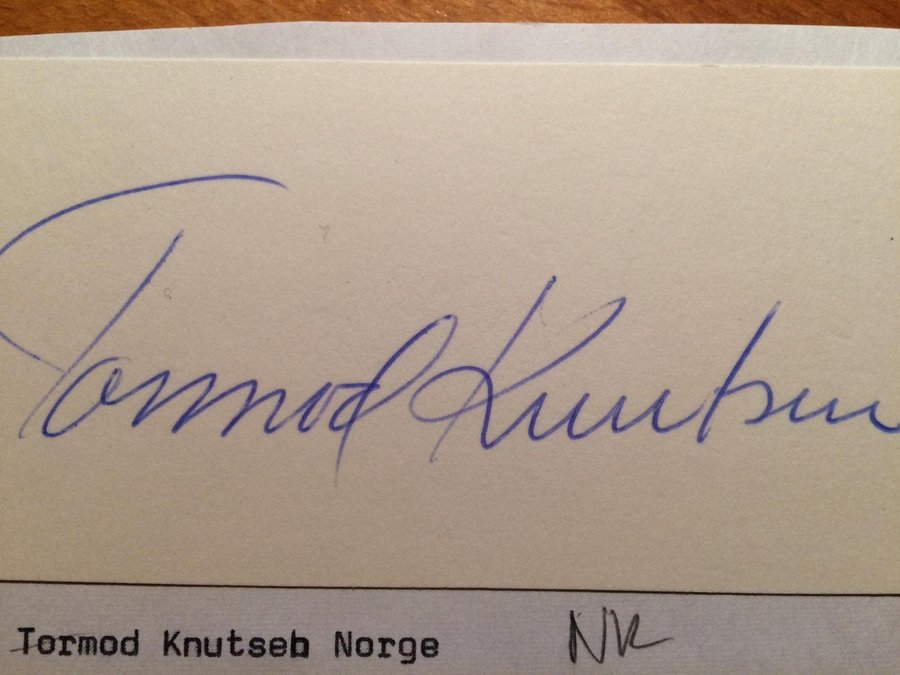 Tormod Knutsen
Tormod Knutseb Norge NK